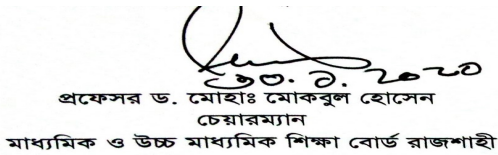 ৩০.৯.২০২০
প্রফেসর ড. মোহাঃ মোকবুল হোসেন
চেয়ারম্যান
মাধ্যমিক ও উচ্চ মাধ্যমিক শিক্ষা বোর্ড রাজশাহী